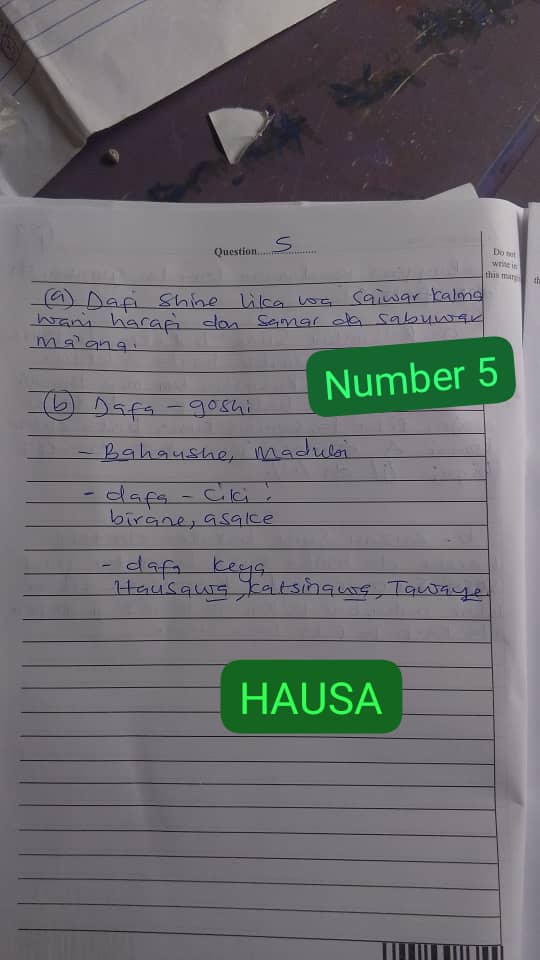 Question 5
Do not
write in
this margin
(a) Dafi shine lika wa saiwar kalma
wani harafi don samar da sabuwar
ma'ana.
Number 5
(b) Dafa - goshi
- Bahaushe, Madubi
- dafa - ciki:
birane, asake
- dafa keya
Hausawa, Katsinawa, Tawaye
HAUSA